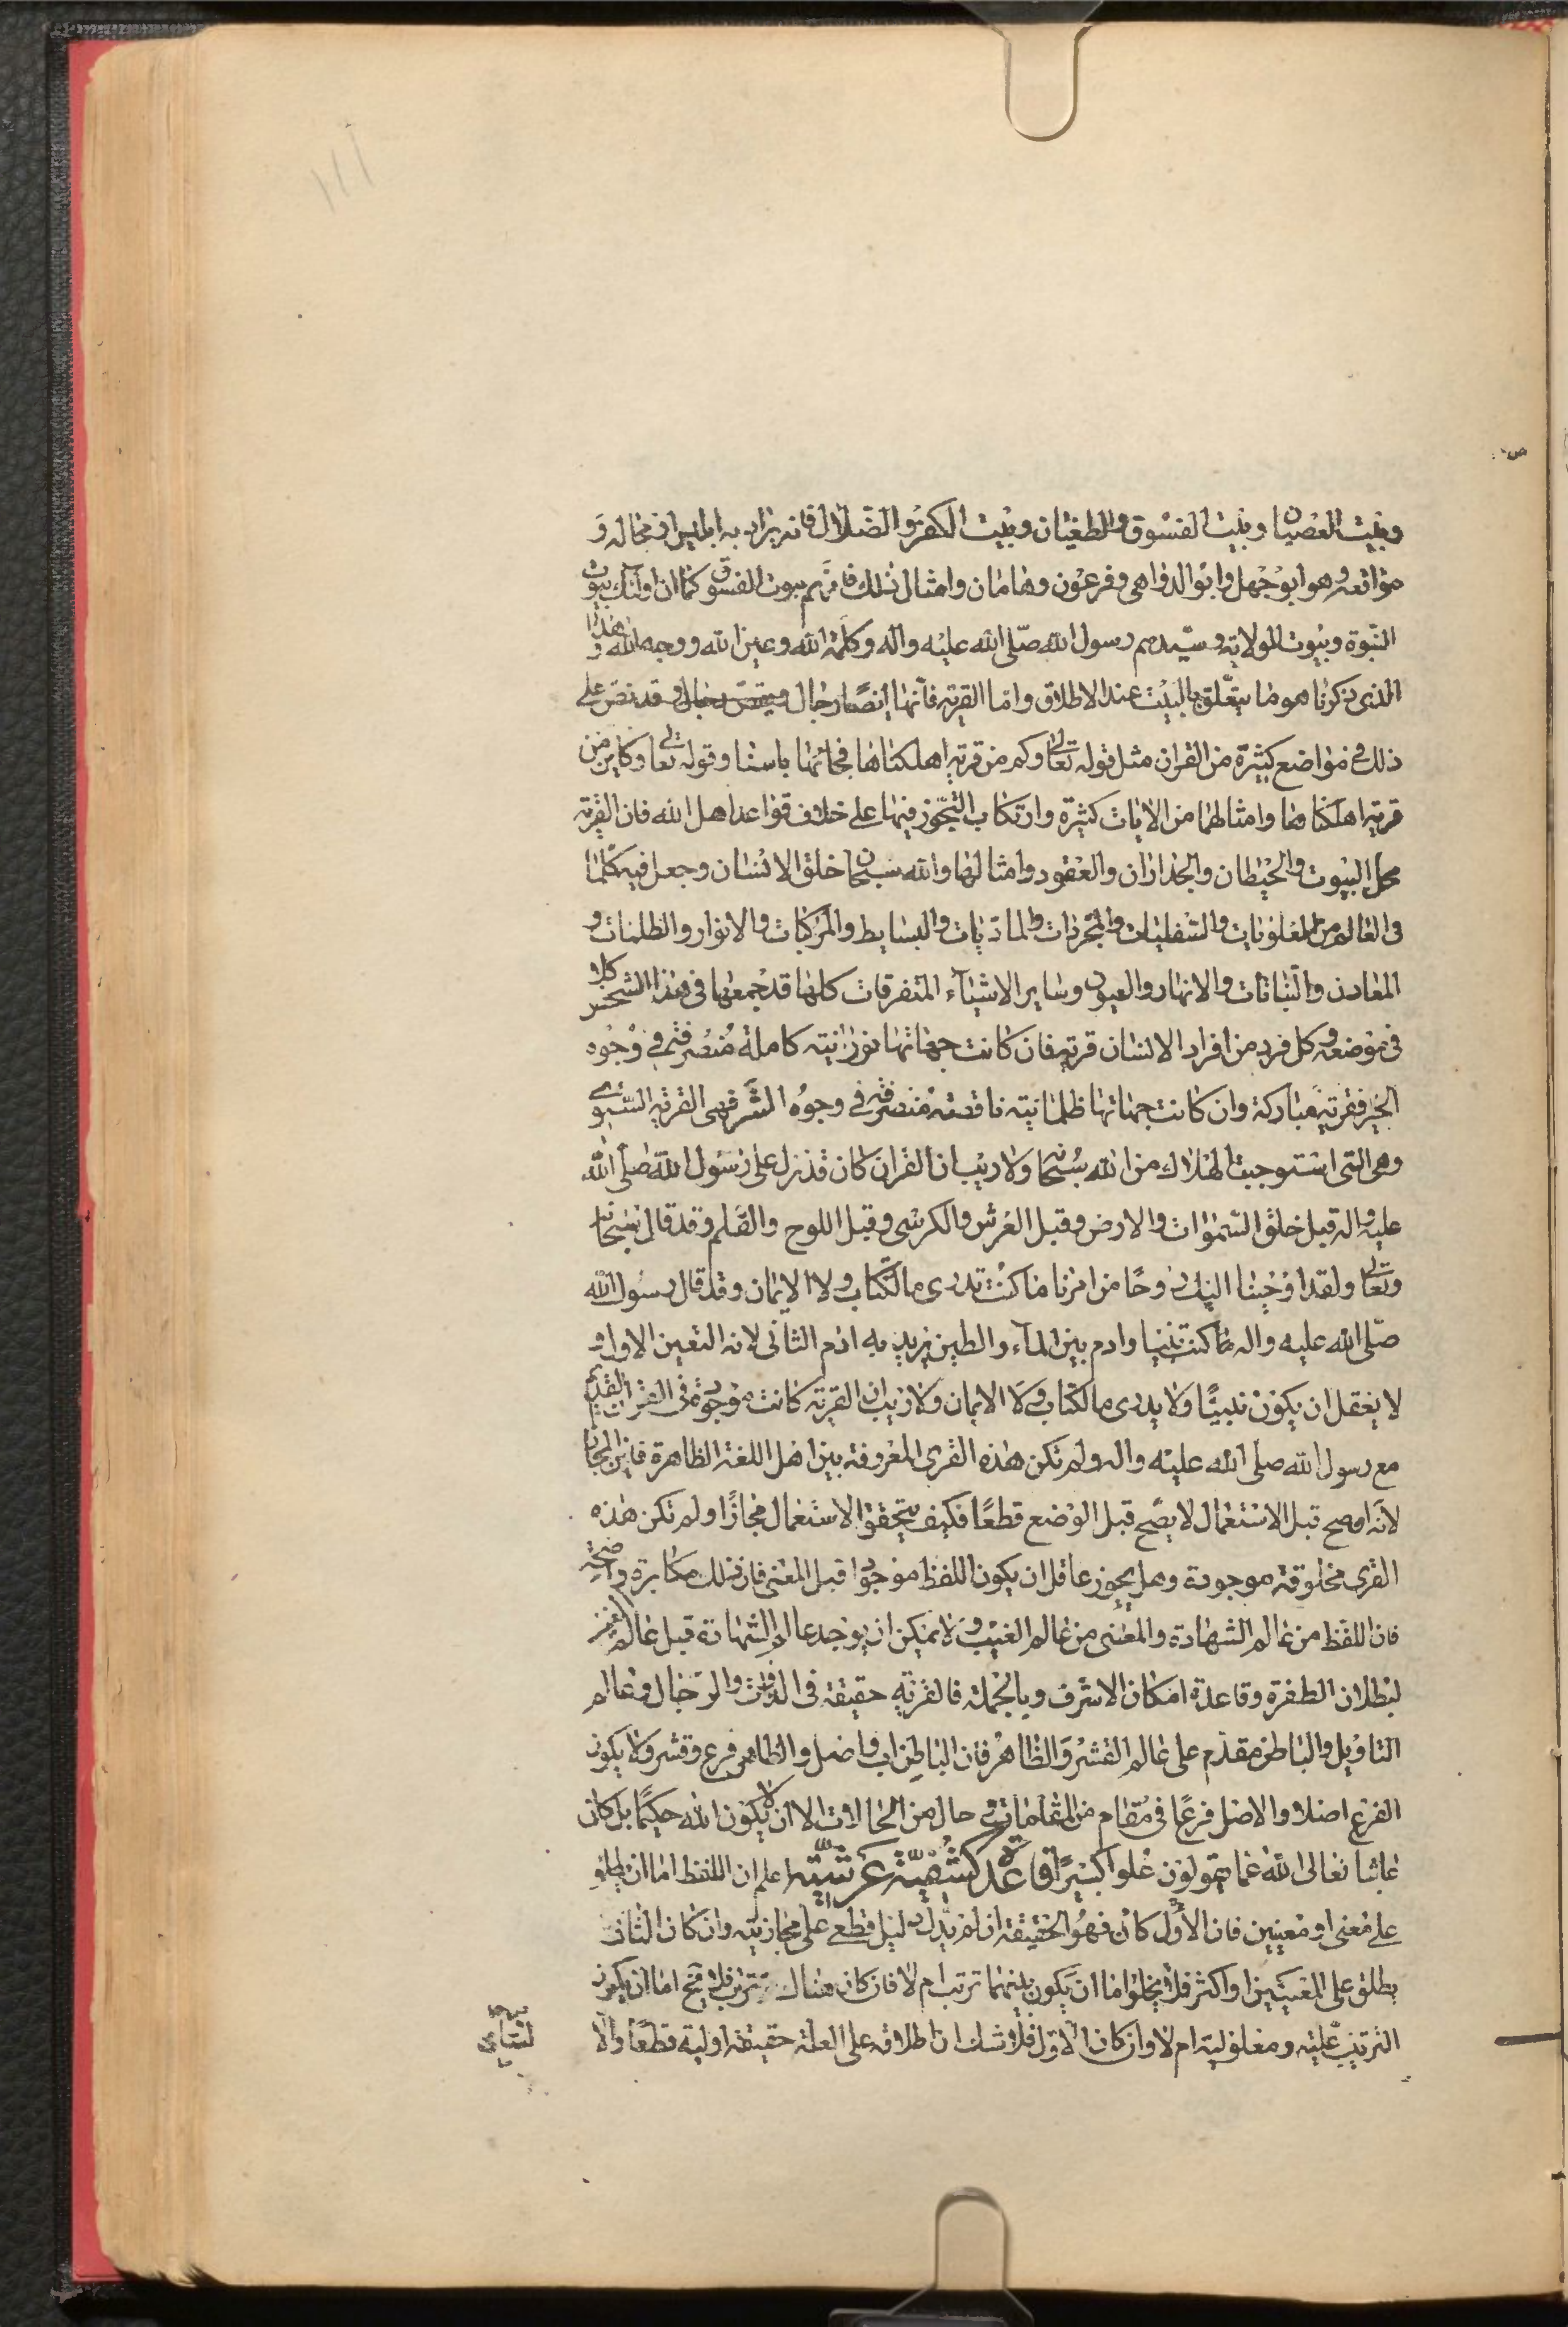 ١١١
وبيت العصيان وبيت الفسوق والطغيان وبيت الكفر والضلال فانه يراد به ابليس في محاله و
مواقعه وهو ابو جهل وابو الدواهي وفرعون وهامان وامثال ذلك فانهم بيوت الفسوق كما ان اولئك بيوت
النبوة وبيوت الولاية وسيدهم رسول الله صلى الله عليه واله وكلمة الله وعين الله ووجه الله وهذا
الذي ذكرنا هو ما يتعلق بالبيت عند الاطلاق واما القرية فانها ايضا رجال وقد نص على
ذلك في مواضع كثيرة من القران مثل قوله تعالى وكم من قرية اهلكناها فجائها باسنا وقوله تعالى وكاين من
قرية اهلكناها وامثالهما من الايات كثيرة وارتكاب التجوز فيها على خلاف قواعد اهل الله فان القرية
محل البيوت والحيطان والجدران والعقود وامثالها والله سبحانه خلق الانسان وجعل فيه كلما
في العالم من العلويات والسفليات والمجردات والماديات والبسايط والمركبات والانوار والظلمات و
المعادن والنباتات والانهار والعيون وساير الاشياء المتفرقات كلها قد جمعها في هذا الشخص كلا
في موضعه وكل فرد من افراد الانسان قرية فان كانت جهاتها نورانية كاملة منصرفة في وجوه
الخير فقرية مباركة وان كانت جهاتها ظلمانية ناقصة منصرفة في وجوه الشر فهي القرية السوى
وهي التي استوجبت الهلاك من الله سبحانه ولا ريب ان القران كان قد نزل على رسول الله صلى الله
عليه واله قبل خلق السموات والارض وقبل العرش والكرسي وقبل اللوح والقلم وقد قال سبحانه
وتعالى ولقد اوحينا اليك روحا من امرنا ما كنت تدرى ما الكتاب ولا الايمان وقد قال رسول الله
صلى الله عليه واله ما كنت نبيا وادم بين الماء والطين يريد به ادم الثاني لانه التعين الاول و
لا يعقل ان يكون نبيا ولا يدرى ما الكتاب ولا الايمان ولا ريب ان القرية كانت موجودة في القران القديم
مع رسول الله صلى الله عليه واله ولم تكن هذه القرى المعروفة بين اهل اللغة الظاهرة فاين المجاز
لانه ان صح قبل الاستعمال لا يصح قبل الوضع قطعا فكيف يتحقق الاستعمال مجازا ولم تكن هذه
القرى مخلوقة موجودة وهل يجوز عاقل ان يكون اللفظ موجودا قبل المعنى فان ذلك مكابرة واضحة
فان اللفظ من عالم الشهادة والمعنى من عالم الغيب ولا يمكن ان يوجد عالم الشهادة قبل عالم الغيب
لبطلان الطفرة وقاعدة امكان الاشرف وبالجملة فالقرية حقيقة في الذوات والرجال وعالم
التاويل والباطن مقدم على عالم القشر والظاهر فان الباطن اب واصل والظاهر فرع وقشر ولا يكون
الفرع اصلا والاصل فرعا في مقام من المقامات وفي حال من الحالات الا ان لا يكون الله حكيما بل كان
عابثا تعالى الله عما يقولون علوا كبيرا قاعدة كشفية عرشية اعلم ان اللفظ اما ان يطلق
على معنى او معنيين فان الاول كان فهو الحقيقة ان لم يدل دليل قطعي على مجازيته وان كان الثاني
يطلق على المعنيين او اكثر فلا يخلوا اما ان يكون بينهما ترتب ام لا فان كان هناك ترتب فلا يخ اما ان يكون
الترتيب علية ومعلولية ام لا وان كان الاول فلا شك ان اطلاقه على العلة حقيقة اولية قطعا والا